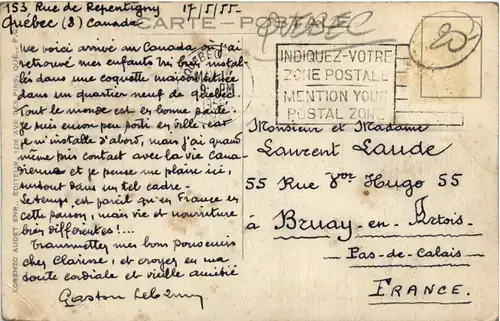 153 Rue de Repentigny 17/5/55-
Québec (8) Canada
CARTE - POSTALE
QUEBEC
20
Me voici arrivé au Canada où j'ai
retrouvé mes enfants très bien instal-
lés dans une coquette maison située
dans un quartier neuf de Québec.
Tout le monde est en bonne santé.
Je suis encore peu sorti en ville, car
je m'installe d'abord, mais j'ai quand
même pris contact avec la vie Cana-
dienne et je pense me plaire ici,
surtout dans un tel cadre.
Le temps est pareil qu'en France en
cette saison, mais vie et nourriture
bien différentes !...
Transmettez mes bons souvenirs
chez Clarisse, et croyez en ma
toute cordiale et vieille amitié
Gaston
QUEBEC
PM
INDIQUEZ-VOTRE
ZONE POSTALE
MENTION YOUR
POSTAL ZONE
Monsieur et Madame
Laurent Laude
55 Rue Vor Hugo 55
à Bruay-en-Artois-
Pas-de-Calais-
FRANCE.
LORENZO AUDET ENR., EDITEUR